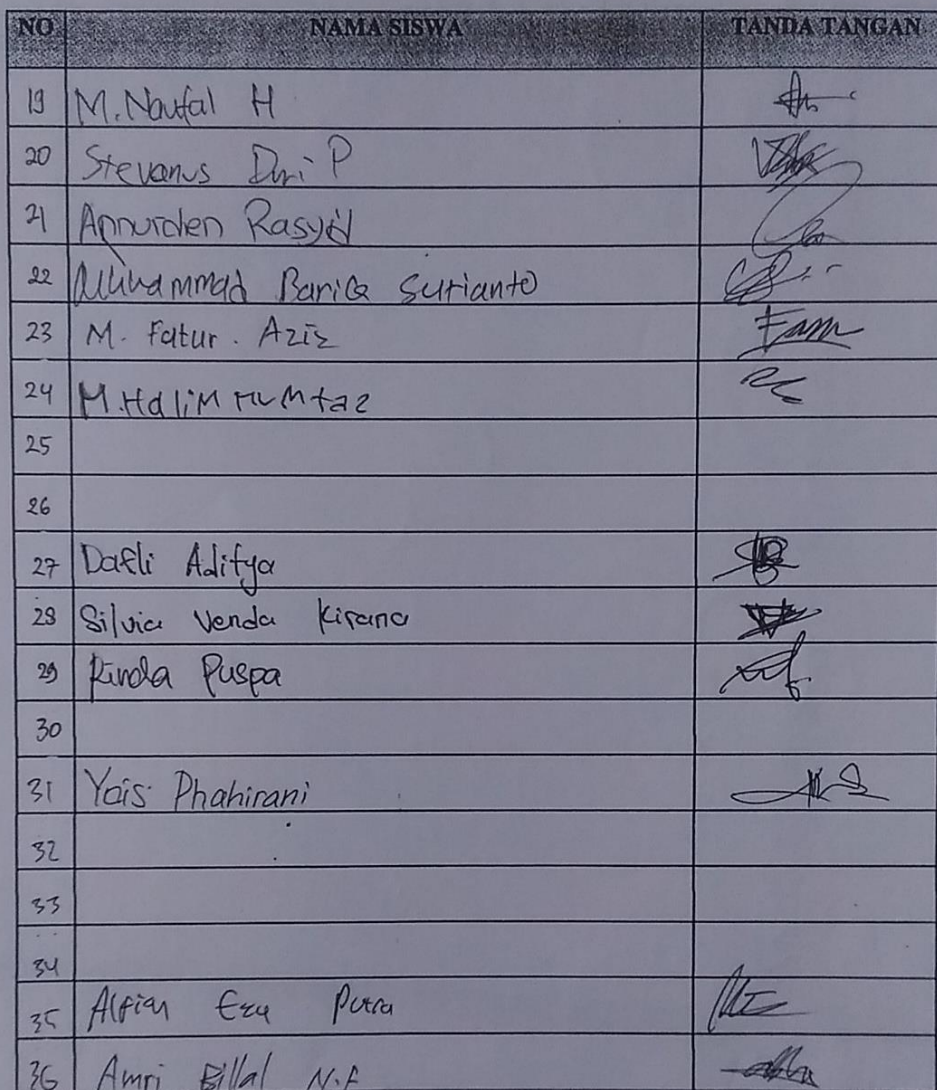 NO NAMA SISWA TANDA TANGAN
19 M. Naufal H
20 Stevanus Dwi P
21 Annurden Rasyid
22 Muhammad Barica Surianto
23 M. Fatur. Aziz
24 M. Halim Mumtaz
25
26
27 Dafli Aditya
28 Silvia Venda Kirana
29 Rinda Puspa
30
31 Yais Phahirani
32
33
34
35 Alfian Eza Putra
36 Amri Billal N.F